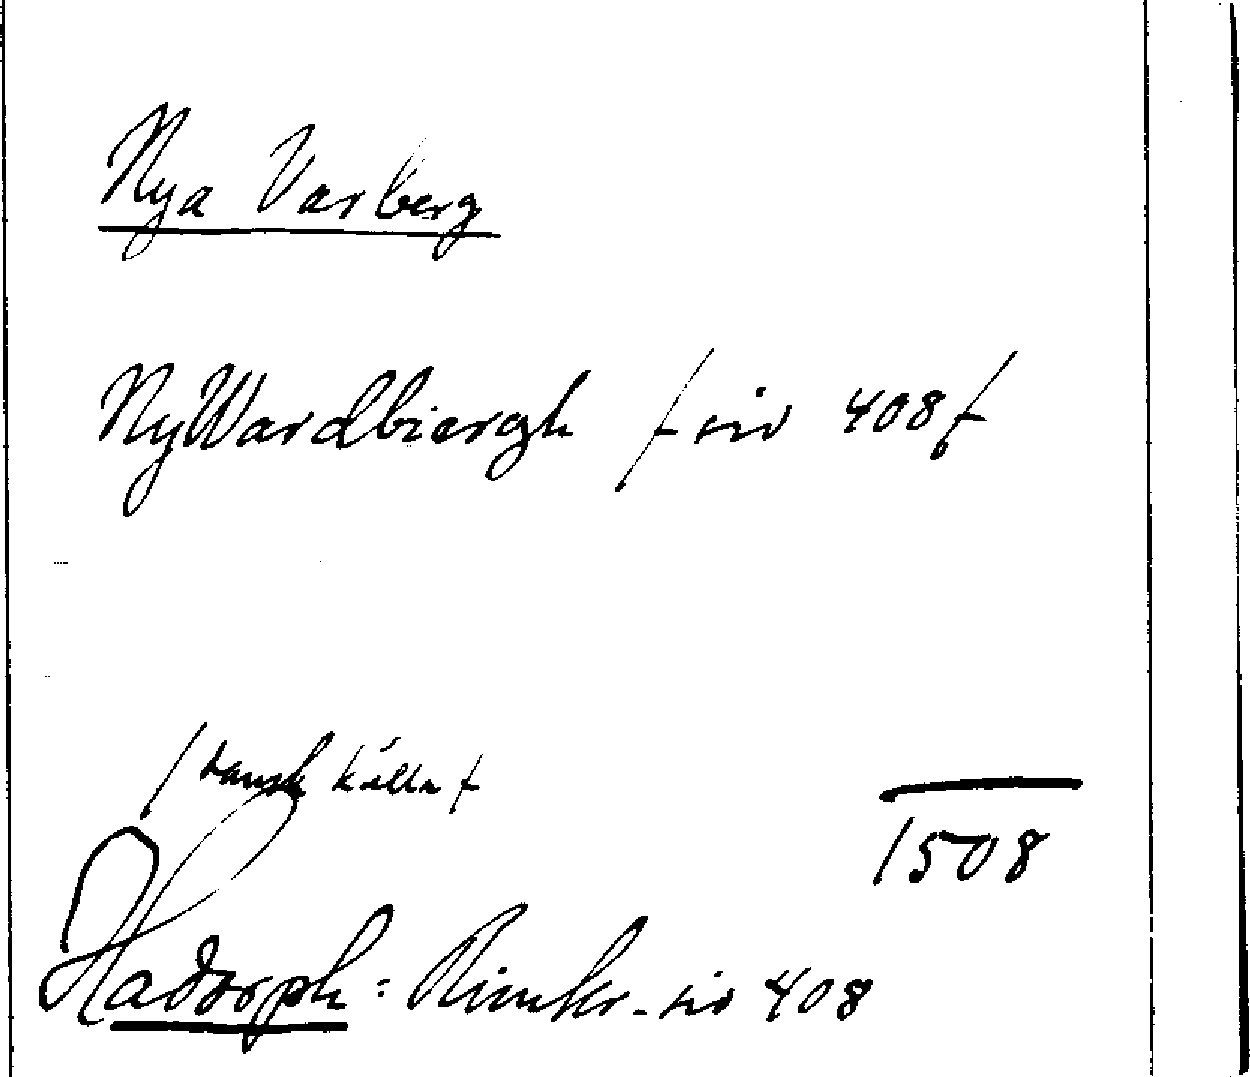 Nya Varberg
NyWardbiergh / sid 408 /
/ dansk källa /
1508
Hadorph: Rimkr. sid 408